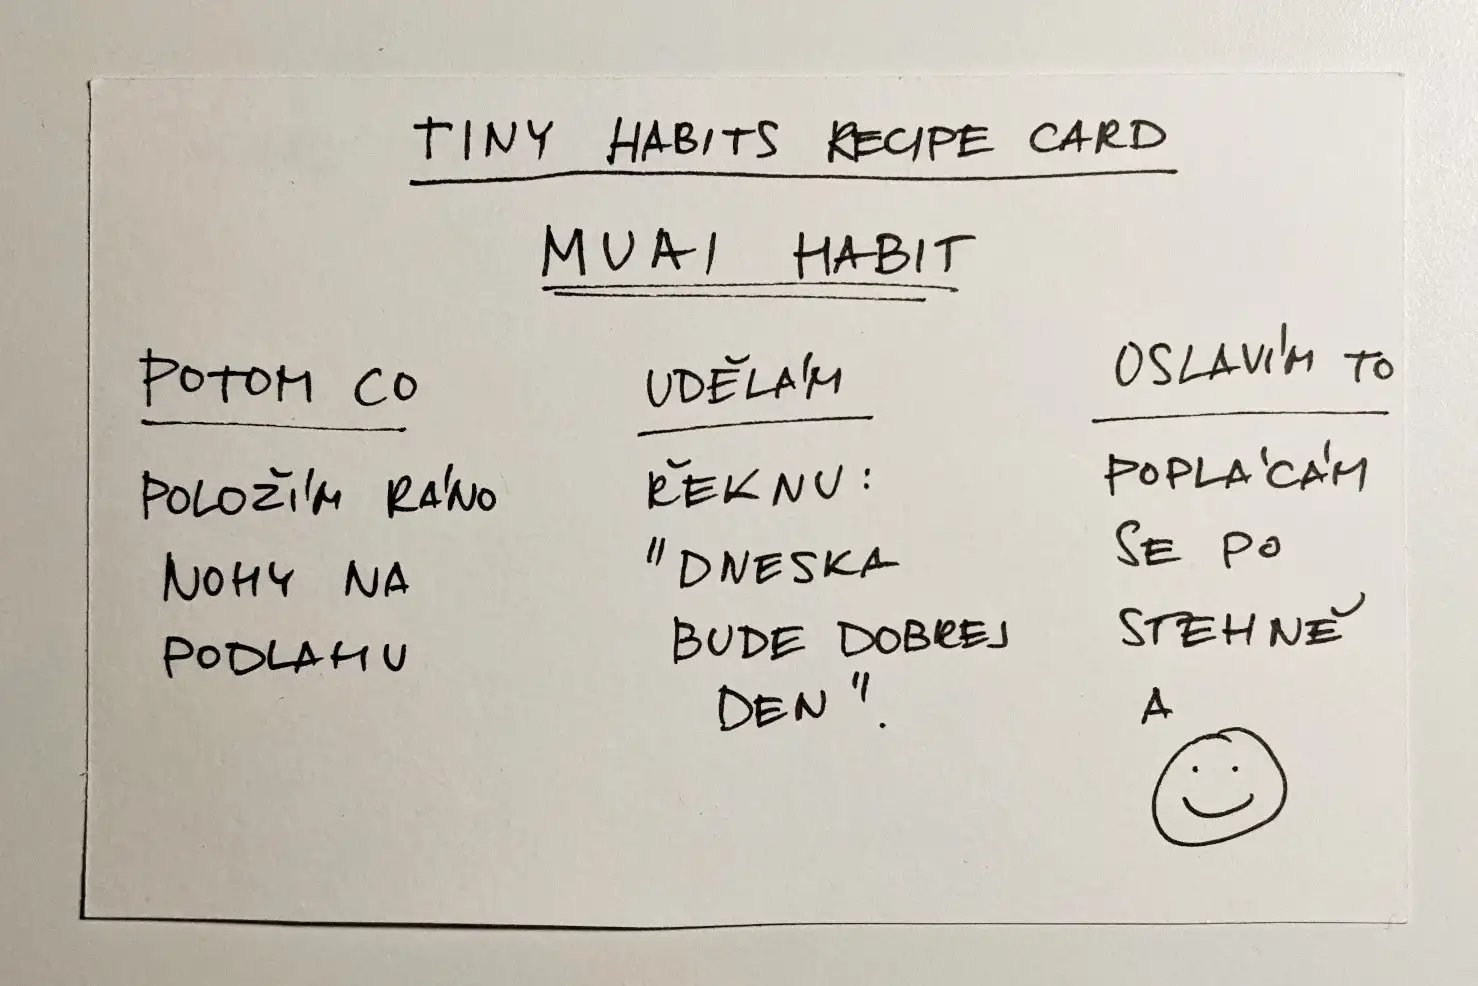 TINY HABITS RECIPE CARD
MUAI HABIT
POTOM CO
POLOŽÍM RÁNO
NOHY NA
PODLAHU
UDĚLÁM
ŘEKNU:
"DNESKA
BUDE DOBREJ
DEN".
OSLAVÍM TO
POPLÁCÁM
SE PO
STEHNĚ
A